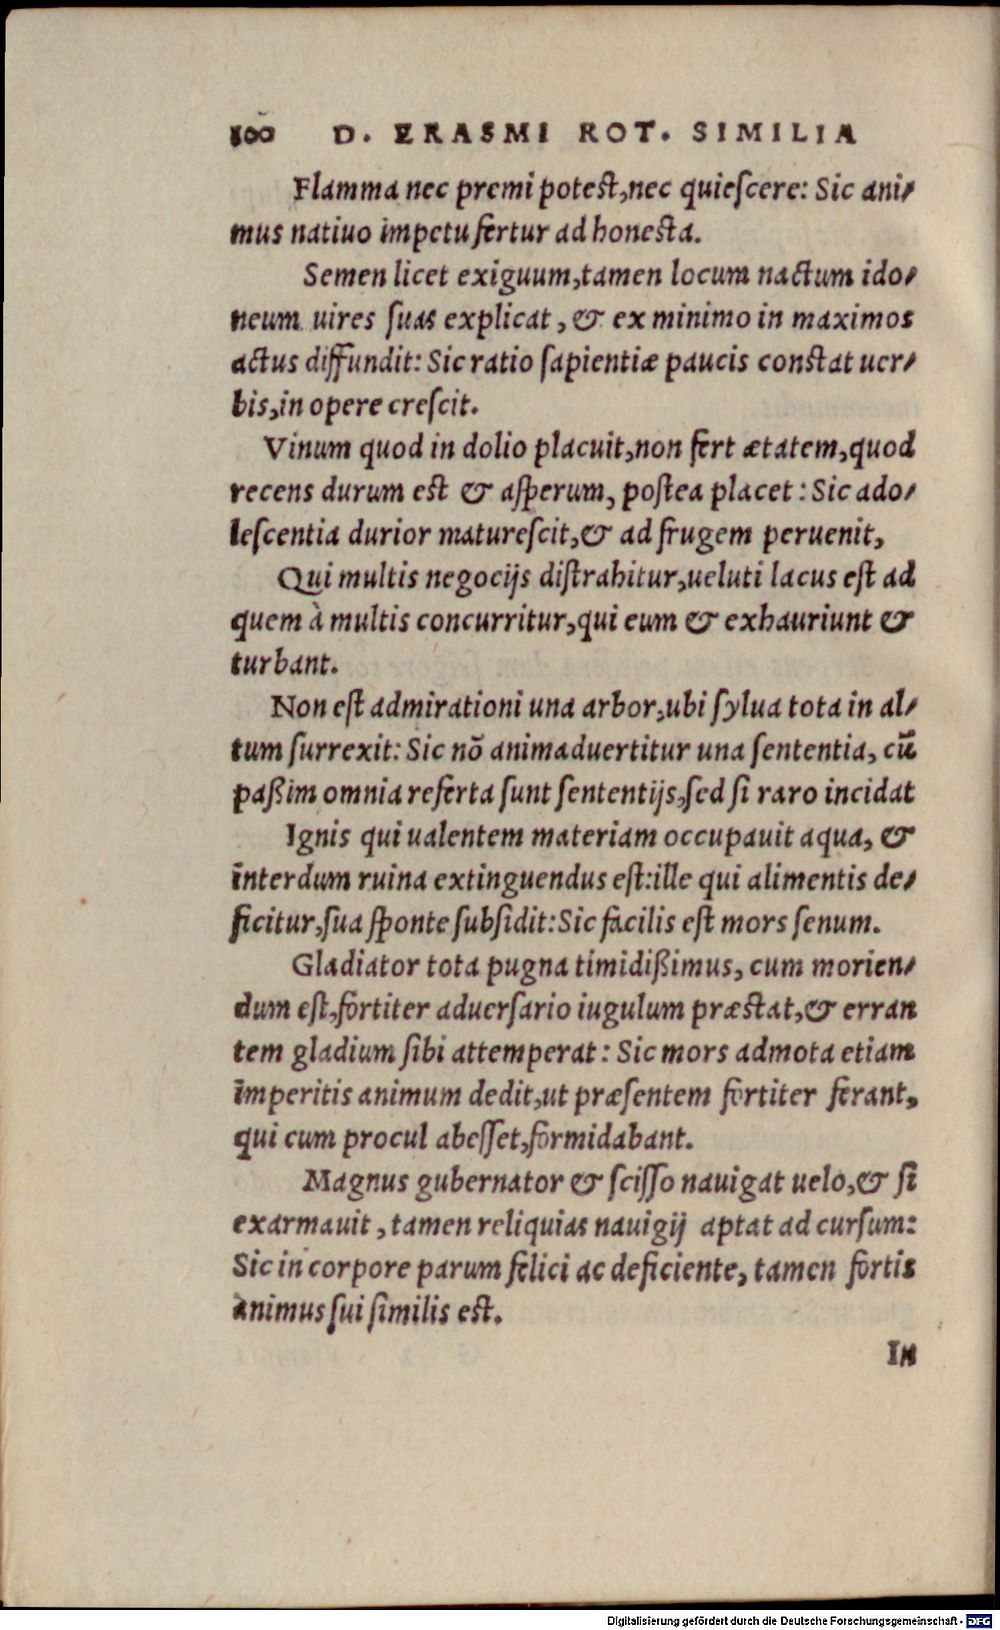 100 D. ERASMI ROT. SIMILIA
Flamma nec premi potest, nec quiescere: Sic ani-
mus natiuo impetu fertur ad honesta.
Semen licet exiguum, tamen locum nactum ido-
neum uires suas explicat, & ex minimo in maximos
actus diffundit: Sic ratio sapientiæ paucis constat uer-
bis, in opere crescit.
Vinum quod in dolio placuit, non fert ætatem, quod
recens durum est & asperum, postea placet: Sic ado-
lescentia durior maturescit, & ad frugem peruenit,
Qui multis negocijs distrahitur, ueluti lacus est ad
quem à multis concurritur, qui eum & exhauriunt &
turbant.
Non est admirationi una arbor, ubi sylua tota in al-
tum surrexit: Sic nõ animaduertitur una sententia, cũ
paßim omnia referta sunt sententijs, sed si raro incidat
Ignis qui ualentem materiam occupauit aqua, &
interdum ruina extinguendus est: ille qui alimentis de-
ficitur, sua sponte subsidit: Sic facilis est mors senum.
Gladiator tota pugna timidißimus, cum morien-
dum est, fortiter aduersario iugulum præstat, & erran
tem gladium sibi attemperat: Sic mors admota etiam
imperitis animum dedit, ut præsentem fortiter ferant,
qui cum procul abesset, formidabant.
Magnus gubernator & scisso nauigat uelo, & si
exarmauit, tamen reliquias nauigij aptat ad cursum:
Sic in corpore parum felici ac deficiente, tamen fortis
animus sui similis est.
In
Digitalisierung gefördert durch die Deutsche Forschungsgemeinschaft - DFG